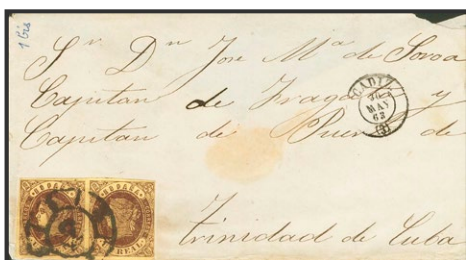 1 Bis
Sr Dn Jose Ma de Soroa
Capitan de Fragata y
Capitan de Puerto de
Trinidad de Cuba
CADIZ
MAY
63
(3)
ESPAÑA ESPAÑA
REAL